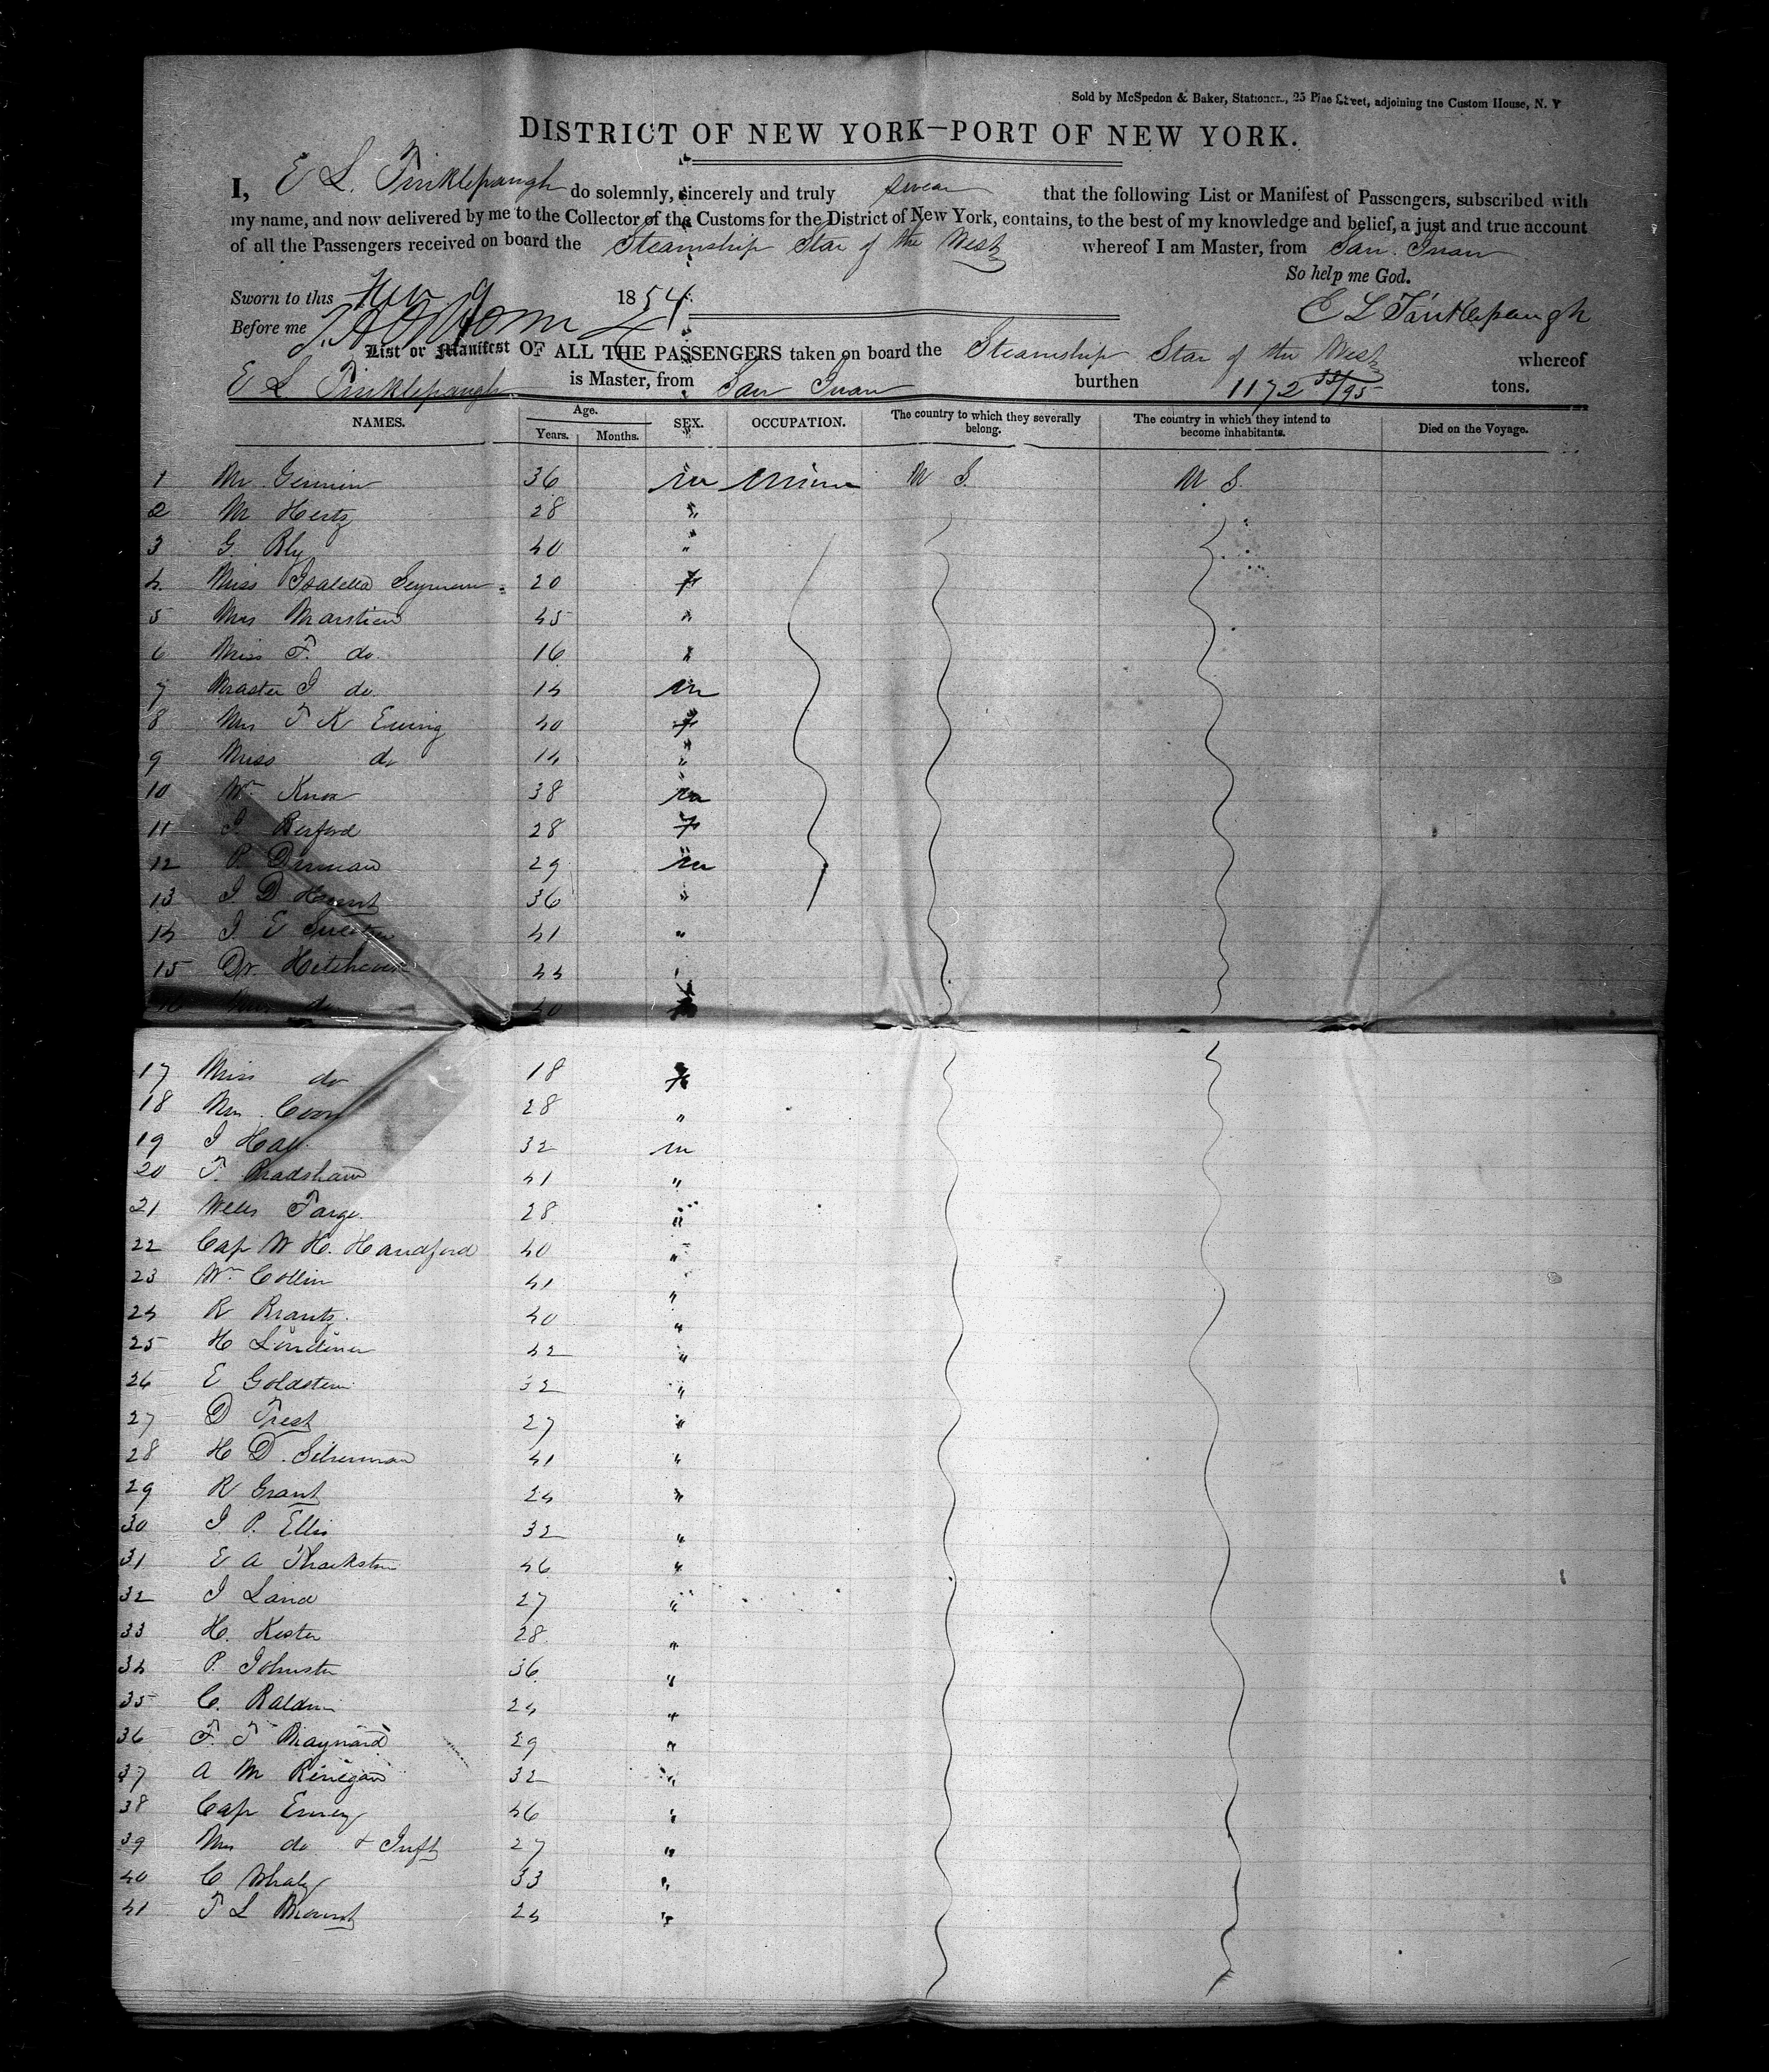 Sold by McSpedon & Baker, Stationers, 25 Pine Street, adjoining the Custom House, N. Y
DISTRICT OF NEW YORK—PORT OF NEW YORK.
I, E L. Tinklepaugh do solemnly, sincerely and truly swear that the following List or Manifest of Passengers, subscribed with
my name, and now delivered by me to the Collector of the Customs for the District of New York, contains, to the best of my knowledge and belief, a just and true account
of all the Passengers received on board the Steamship Star of the West whereof I am Master, from San Juan
So help me God.
Sworn to this 9 1854
E L Tinklepaugh
Before me
List or Manifest OF ALL THE PASSENGERS taken on board the Steamship Star of the West whereof
E L Tinklepaugh is Master, from San Juan burthen 1172 /95 tons.
NAMES. Age. Years. Months. SEX. OCCUPATION. The country to which they severally belong. The country in which they intend to become inhabitants. Died on the Voyage.
1 Mr 36 m U S. U S.
2 M Hertz 28 "
3 G. Bly 40 "
4 Miss Isabella Seymour 20 f
5 Mrs Marstien 45 "
6 Miss F. do. 16 "
7 Master J do. 14 m
8 Mrs T K Ewing 40 f
9 Miss do 14 "
10 Wm Knox 38 m
11 J. Berford 28 f
12 P. 29 m
13 J D 36 "
14 J. E 41 "
15 Dr. 44
16 Mrs do 40
17 Miss do 18 f
18 Mrs Coon 28 "
19 J Hall 32 m
20 T. Bradshaw 41 "
21 Wells Fargo. 28 "
22 Cap W H. Handford 40 "
23 Wm Collin 41 "
24 R Brantz. 40 "
25 H Lindiner 42 "
26 E Goldstein 32 "
27 D Trest 27 "
28 H D. Silverman 41 "
29 R Grant 24 "
30 J P. Ellis 32 "
31 E A Thackston 46 "
32 J Land 27 "
33 H. Kester 28 "
34 P. Johnston 36 "
35 C. Baldwin 24 "
36 F. T Maynard 29 "
37 A M Rinegan 32 "
38 Cap Emery 46 "
39 Mrs do & Inft 27 "
40 C Whaley 33 "
41 T L Blount 24 "